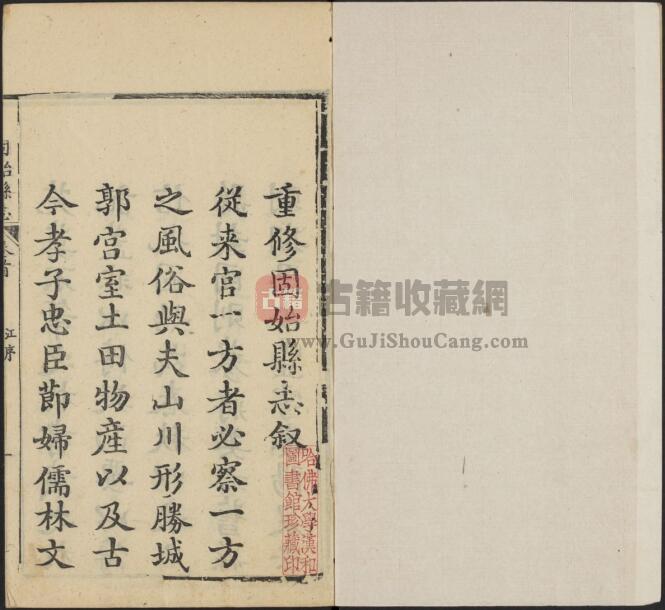 重修固始縣志叙
從来官一方者必察一方
之風俗與夫山川形勝城
郭宫室土田物産以及古
今孝子忠臣節婦儒林文
固始縣志
江序
一
哈佛大學漢和
圖書館珍藏印
古籍
古籍收藏网
www.GuJiShouCang.com